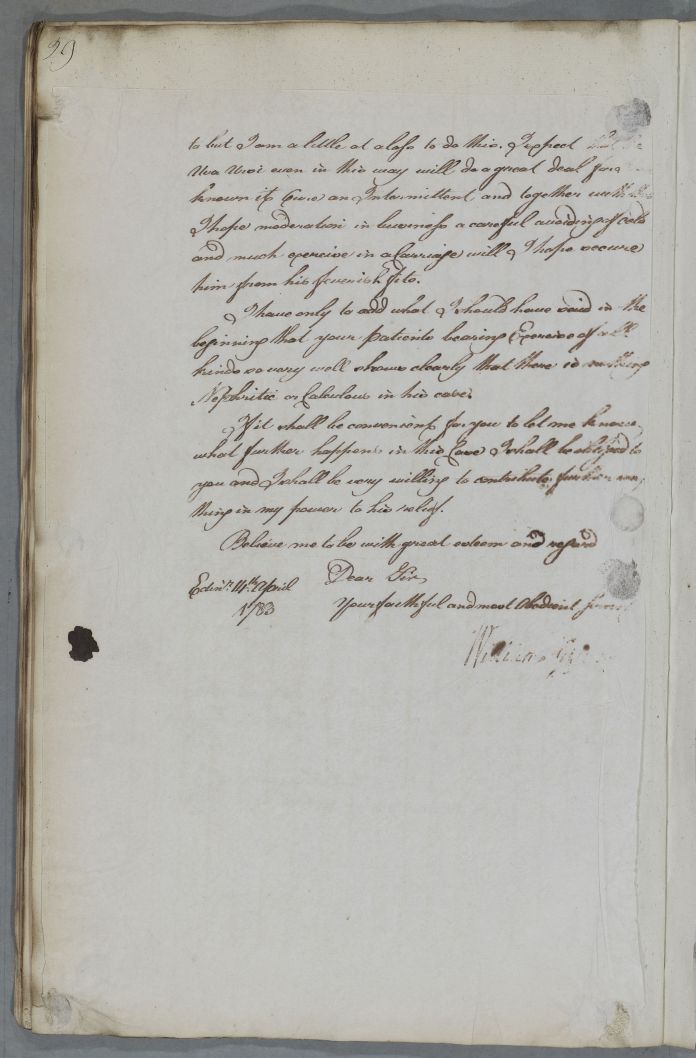 29
to but I am a little at a loss to do this. I expect that the
Uva Ursi even in this way will do a great deal for I have
known it Cure an Intermittent and together with this
I hope moderation in business a careful avoiding of cold
and much exercise in a Carriage will I hope secure
him from his feverish fits.
I have only to add what I should have said in the
beginning that your patients bearing Exercise of all
kinds so very well shows clearly that there is nothing
Nephritic or Calculous in his case.
If it shall be convenient for you to let me know
what further happens in this Case I shall be obliged to
you and I shall be very willing to contribute further any
thing in my power to his relief.
Believe me to be with great esteem and regard
Dear Sir
Edinr. 14th. April
1783
Your faithful and most Obedient Servt
William